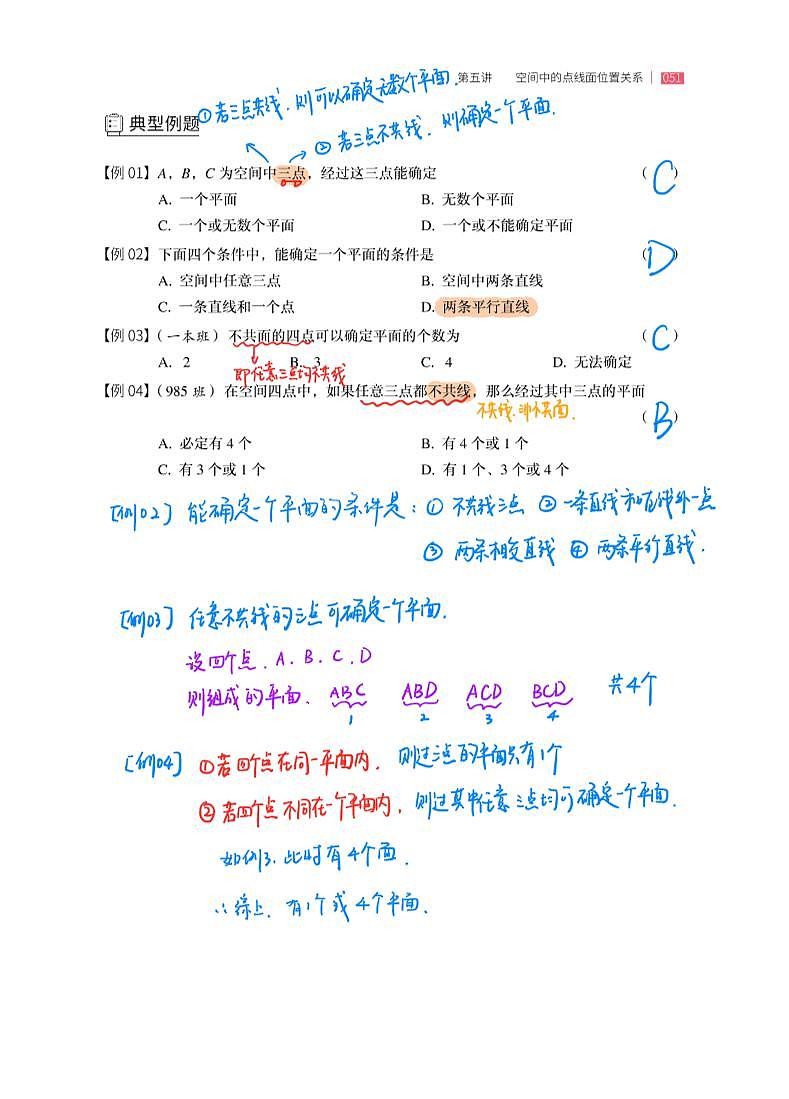 第五讲 空间中的点线面位置关系 051
①若三点共线，则可以确定无数个平面.
典型例题
②若三点不共线，则确定一个平面.
【例 01】A，B，C 为空间中三点，经过这三点能确定 ( C )
A. 一个平面 B. 无数个平面
C. 一个或无数个平面 D. 一个或不能确定平面
【例 02】下面四个条件中，能确定一个平面的条件是 ( D )
A. 空间中任意三点 B. 空间中两条直线
C. 一条直线和一个点 D. 两条平行直线
【例 03】（一本班）不共面的四点可以确定平面的个数为 ( C )
A. 2 B. 3 C. 4 D. 无法确定
即任意三点均不共线
【例 04】（985 班）在空间四点中，如果任意三点都不共线，那么经过其中三点的平面
不共线 共面. ( B )
A. 必定有 4 个 B. 有 4 个或 1 个
C. 有 3 个或 1 个 D. 有 1 个、3 个或 4 个
[例02] 能确定一个平面的条件是：① 不共线三点 ② 一条直线和直线外一点
③ 两条相交直线 ④ 两条平行直线.
[例03] 任意不共线的三点可确定一个平面.
设四个点. A. B. C. D
则组成的平面. ABC ABD ACD BCD 共4个
1 2 3 4
[例04] ①若四个点在同一平面内. 则过三点的平面只有1个
②若四个点不同在一个平面内. 则过其中任意三点均可确定一个平面.
如例3. 此时有4个面.
∴综上. 有1个或4个平面.